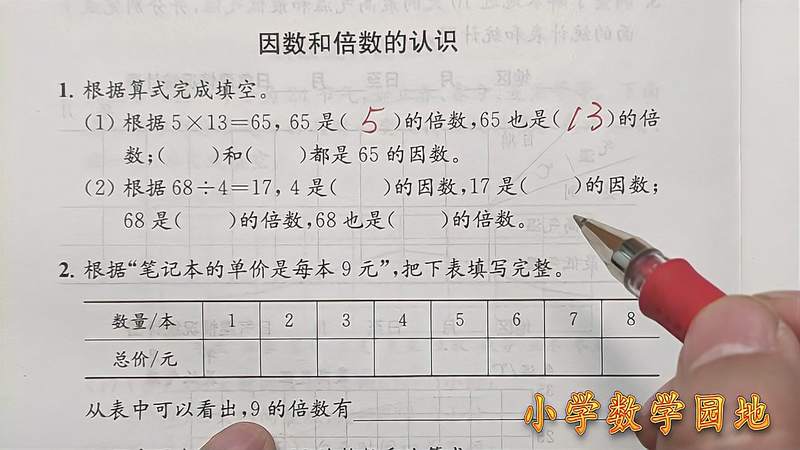 因数和倍数的认识
1. 根据算式完成填空。
(1) 根据5×13=65, 65是( 5 )的倍数,65也是( 13 )的倍
数;(　　)和(　　)都是65的因数。
(2) 根据68÷4=17, 4是(　　)的因数,17是(　　)的因数;
68是(　　)的倍数,68也是(　　)的倍数。
2. 根据“笔记本的单价是每本9元”,把下表填写完整。
数量/本 1 2 3 4 5 6 7 8
总价/元
从表中可以看出,9的倍数有
小学数学园地